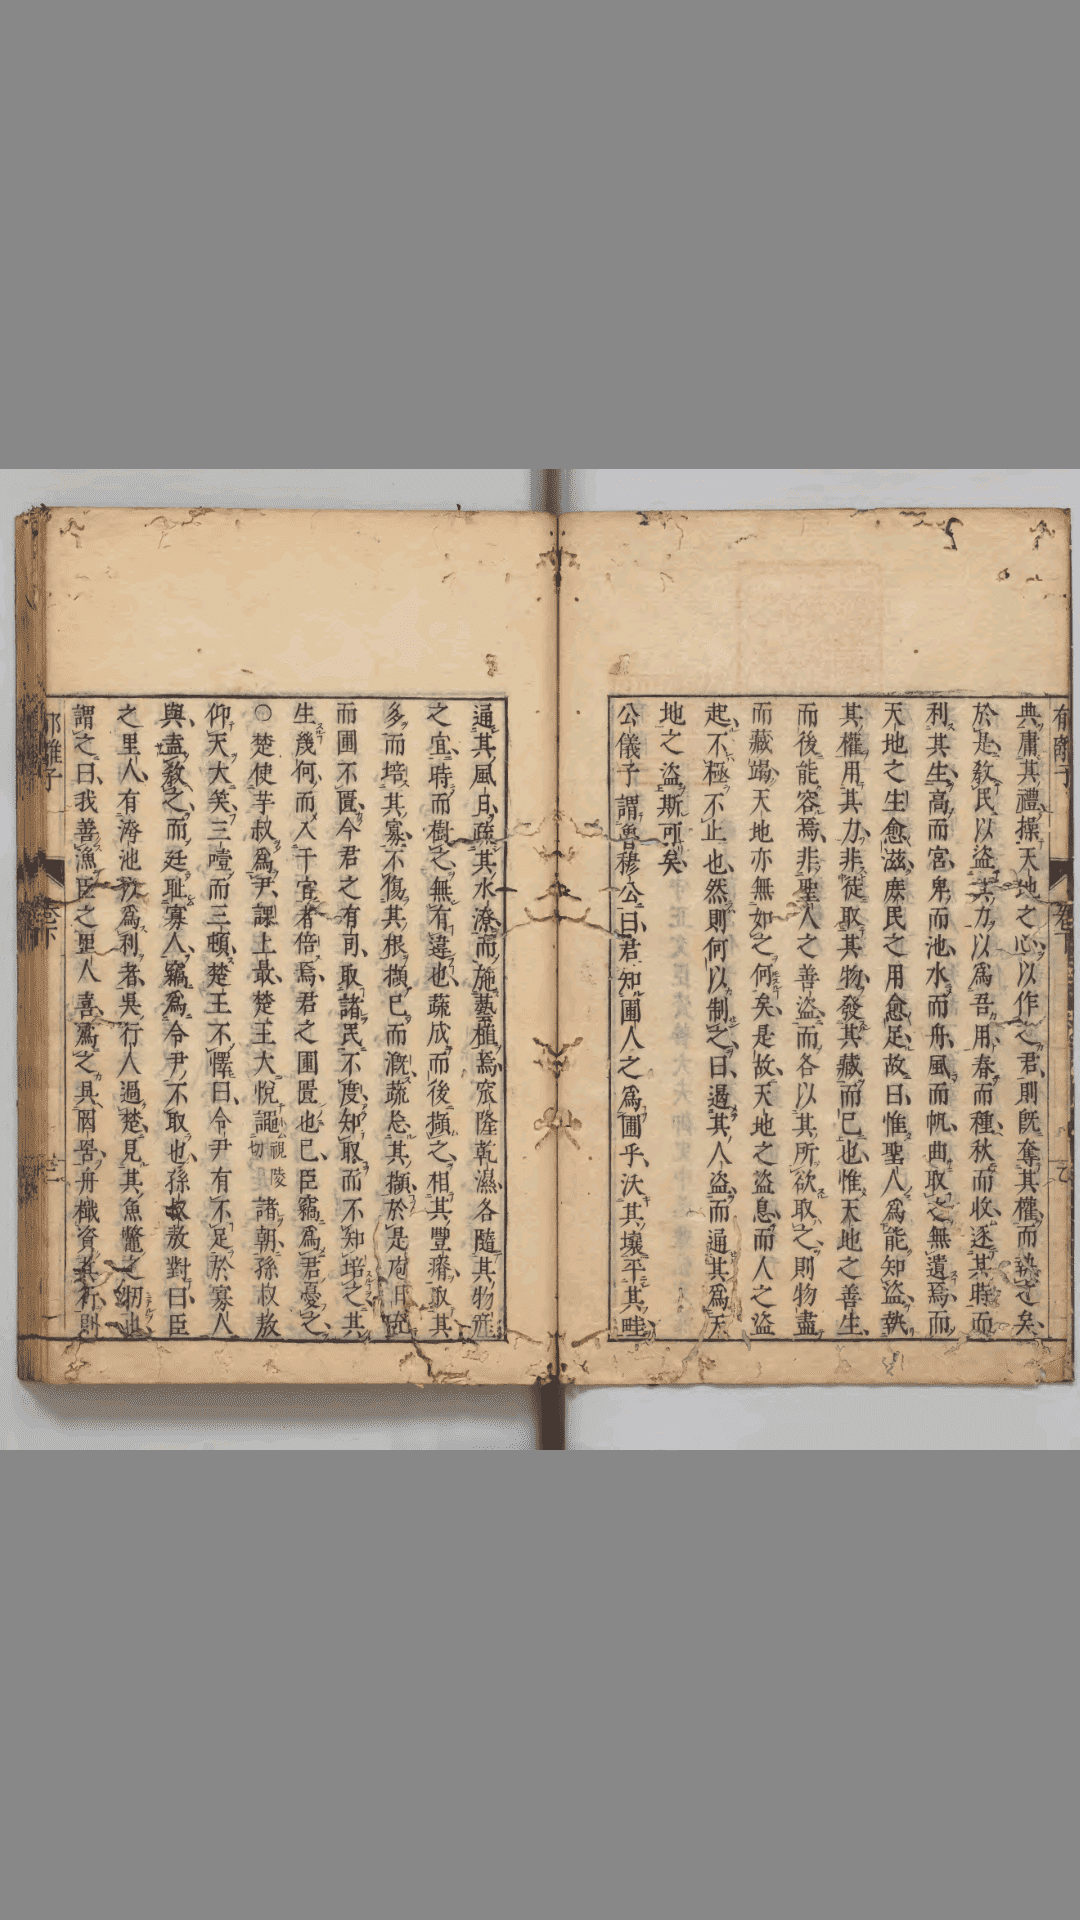 典庸其禮操天地之心以作之君則既奪其權而執之矣
於是教民以盜其力以爲吾用春而種秋而收逐其時而
利其生高而宮卑而池水而舟風而帆曲取之無遺焉而
天地之生愈滋庶民之用愈足故曰惟聖人爲能知盜執
其權用其力非徒取其物發其藏而已也惟天地之善生
而後能容焉非聖人之善盜而各以其所欲取之則物盡
而藏竭天地亦無如之何矣是故天地之盜息而人之盜
起不極不止也然則何以制之曰遏其人盜而通其爲天
地之盜斯可矣
公儀子謂魯穆公曰君知圃人之爲圃乎沃其壤平其畦
通其風日疏其水潦而施藝植焉窊隆乾濕各隨其物産
之宜時而樹之無有違也蔬成而後擷之相其豐瘠取其
多而培其寡不傷其根擷已而溉蔬忘其擷於是庖日充
而圃不匱今君之有司取諸民不度知取而不知培之其
生幾何而入于官者倍焉君之圃匱也已臣竊爲君憂之
〇楚使芋叔爲尹課上最楚王大悅諷諸朝孫叔敖
仰天大笑三噎而三頓楚王不懌曰令尹有不足於寡人
與盍教之而廷耻寡人竊爲令尹不取也孫叔敖對曰臣
之里人有濬池以爲利者吳行人過楚見其魚鼈之牣也
謂之曰我善漁臣之里人喜爲之具罔罟舟檝資其行則
郁離子
卷下